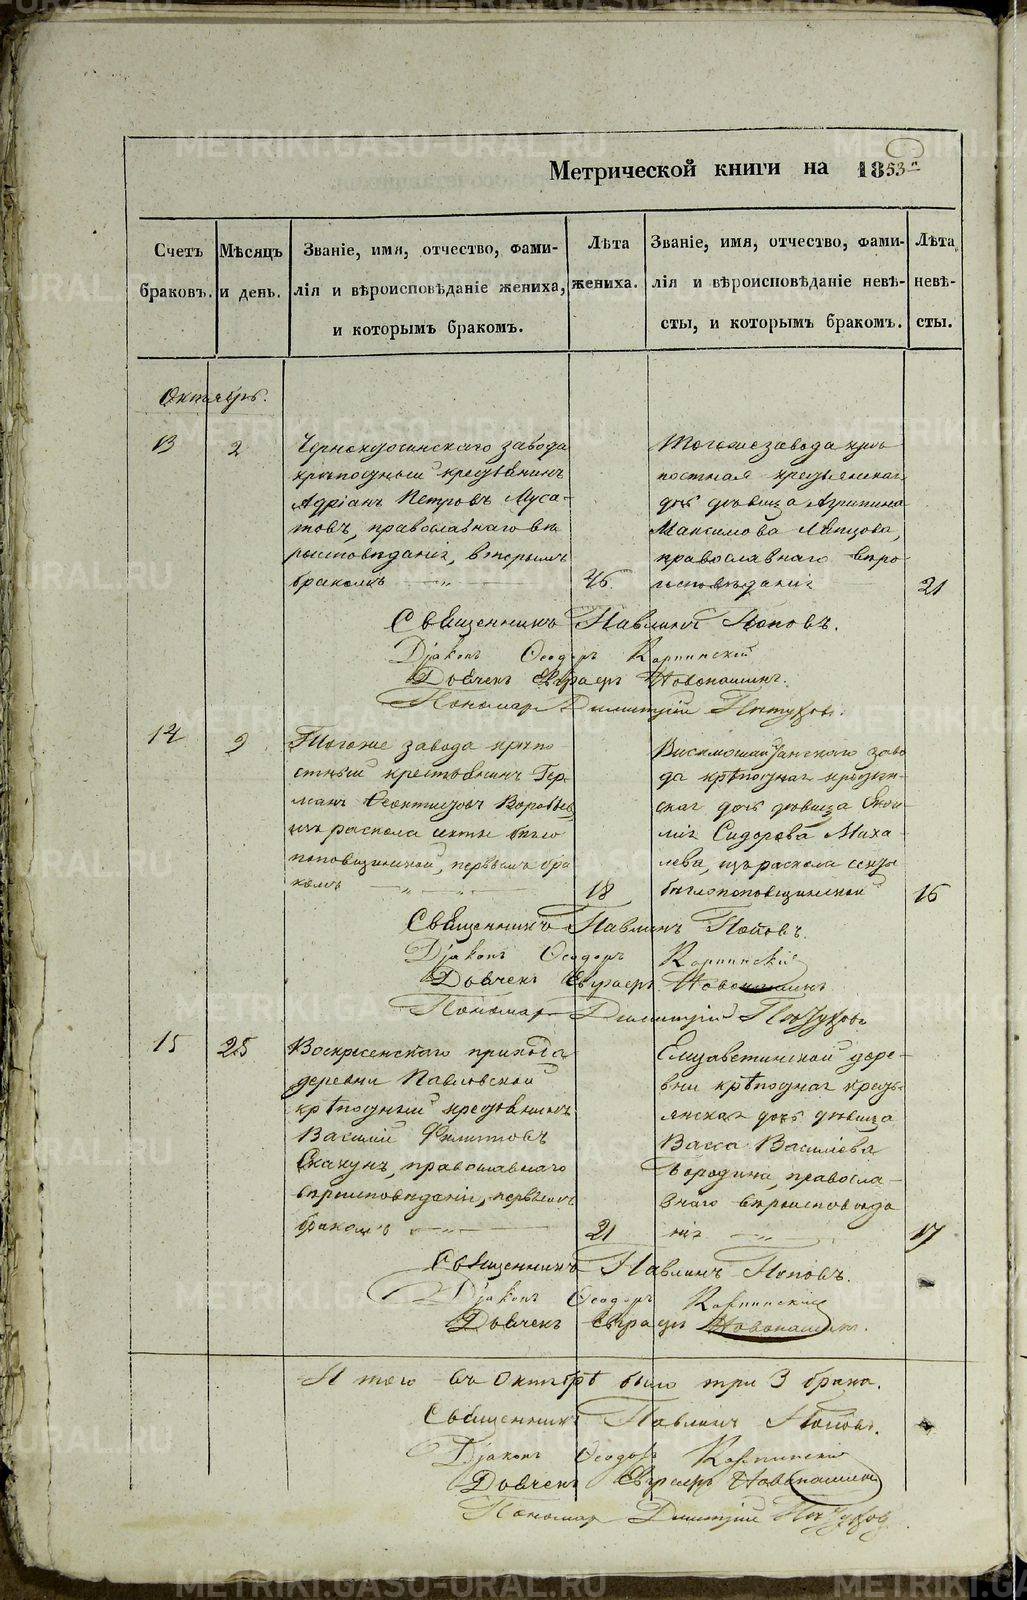 Метрической книги на 1853 й
Счетъ браковъ.
Мѣсяцъ и день.
Званіе, имя, отчество, фами-
лія и вѣроисповѣданіе жениха,
и которымъ бракомъ.
Лѣта жениха.
Званіе, имя, отчество, фами-
лія и вѣроисповѣданіе невѣ-
сты, и которымъ бракомъ.
Лѣта невѣ-
сты.
Октябрь.
13
2
завода
крѣпостный крестьянинъ
Адріанъ Петровъ Муса-
товъ, православнаго вѣ
роисповѣданія, вторымъ
бракомъ
26
Тогоже завода крѣ
постная крестьянская
дочь дѣвица Агрипина
Максимова
православнаго вѣро
исповѣданія
21
Священникъ Павлинъ Поповъ.
Діаконъ Ѳеодоръ Карпинскій
Дьячекъ Новопашинъ.
Пономарь Димитрій Пѣтуховъ.
14
9
Тогоже завода крѣпо
стный крестьянинъ Гер-
манъ Леонтіевъ
изъ раскола секты бѣгло
поповщинской, первымъ бра
комъ
18
Висимошайтанскаго заво
да крѣпостная крестьян-
ская дочь дѣвица
Сидорова Миха-
лева, изъ раскола секты
бѣглопоповщинской
16
Священникъ Павлинъ Поповъ.
Діаконъ Ѳеодоръ Карпинскій
Дьячекъ Новопашинъ
Пономарь Димитрій Пѣтуховъ
15
25
Воскресенскаго прихода
деревни Павловской
крѣпостный крестьянинъ
Василій Филиповъ
Скакунъ, православнаго
вѣроисповѣданія, первымъ
бракомъ
21
Елизаветинской дере-
вни крѣпостная кресть-
янская дочь дѣвица
Васса Васильева
Бородина, правосла-
внаго вѣроисповѣда
нія
17
Священникъ Павлинъ Поповъ.
Діаконъ Ѳеодоръ Карпинскій
Дьячекъ Новопашинъ.
Итого въ Октябрѣ было три 3 брака.
Священникъ Павлинъ Поповъ.
Діаконъ Ѳеодоръ Карпинскій
Дьячекъ Новопашинъ
Пономарь Димитрій Пѣтуховъ
METRIKI.GASO-URAL.RU